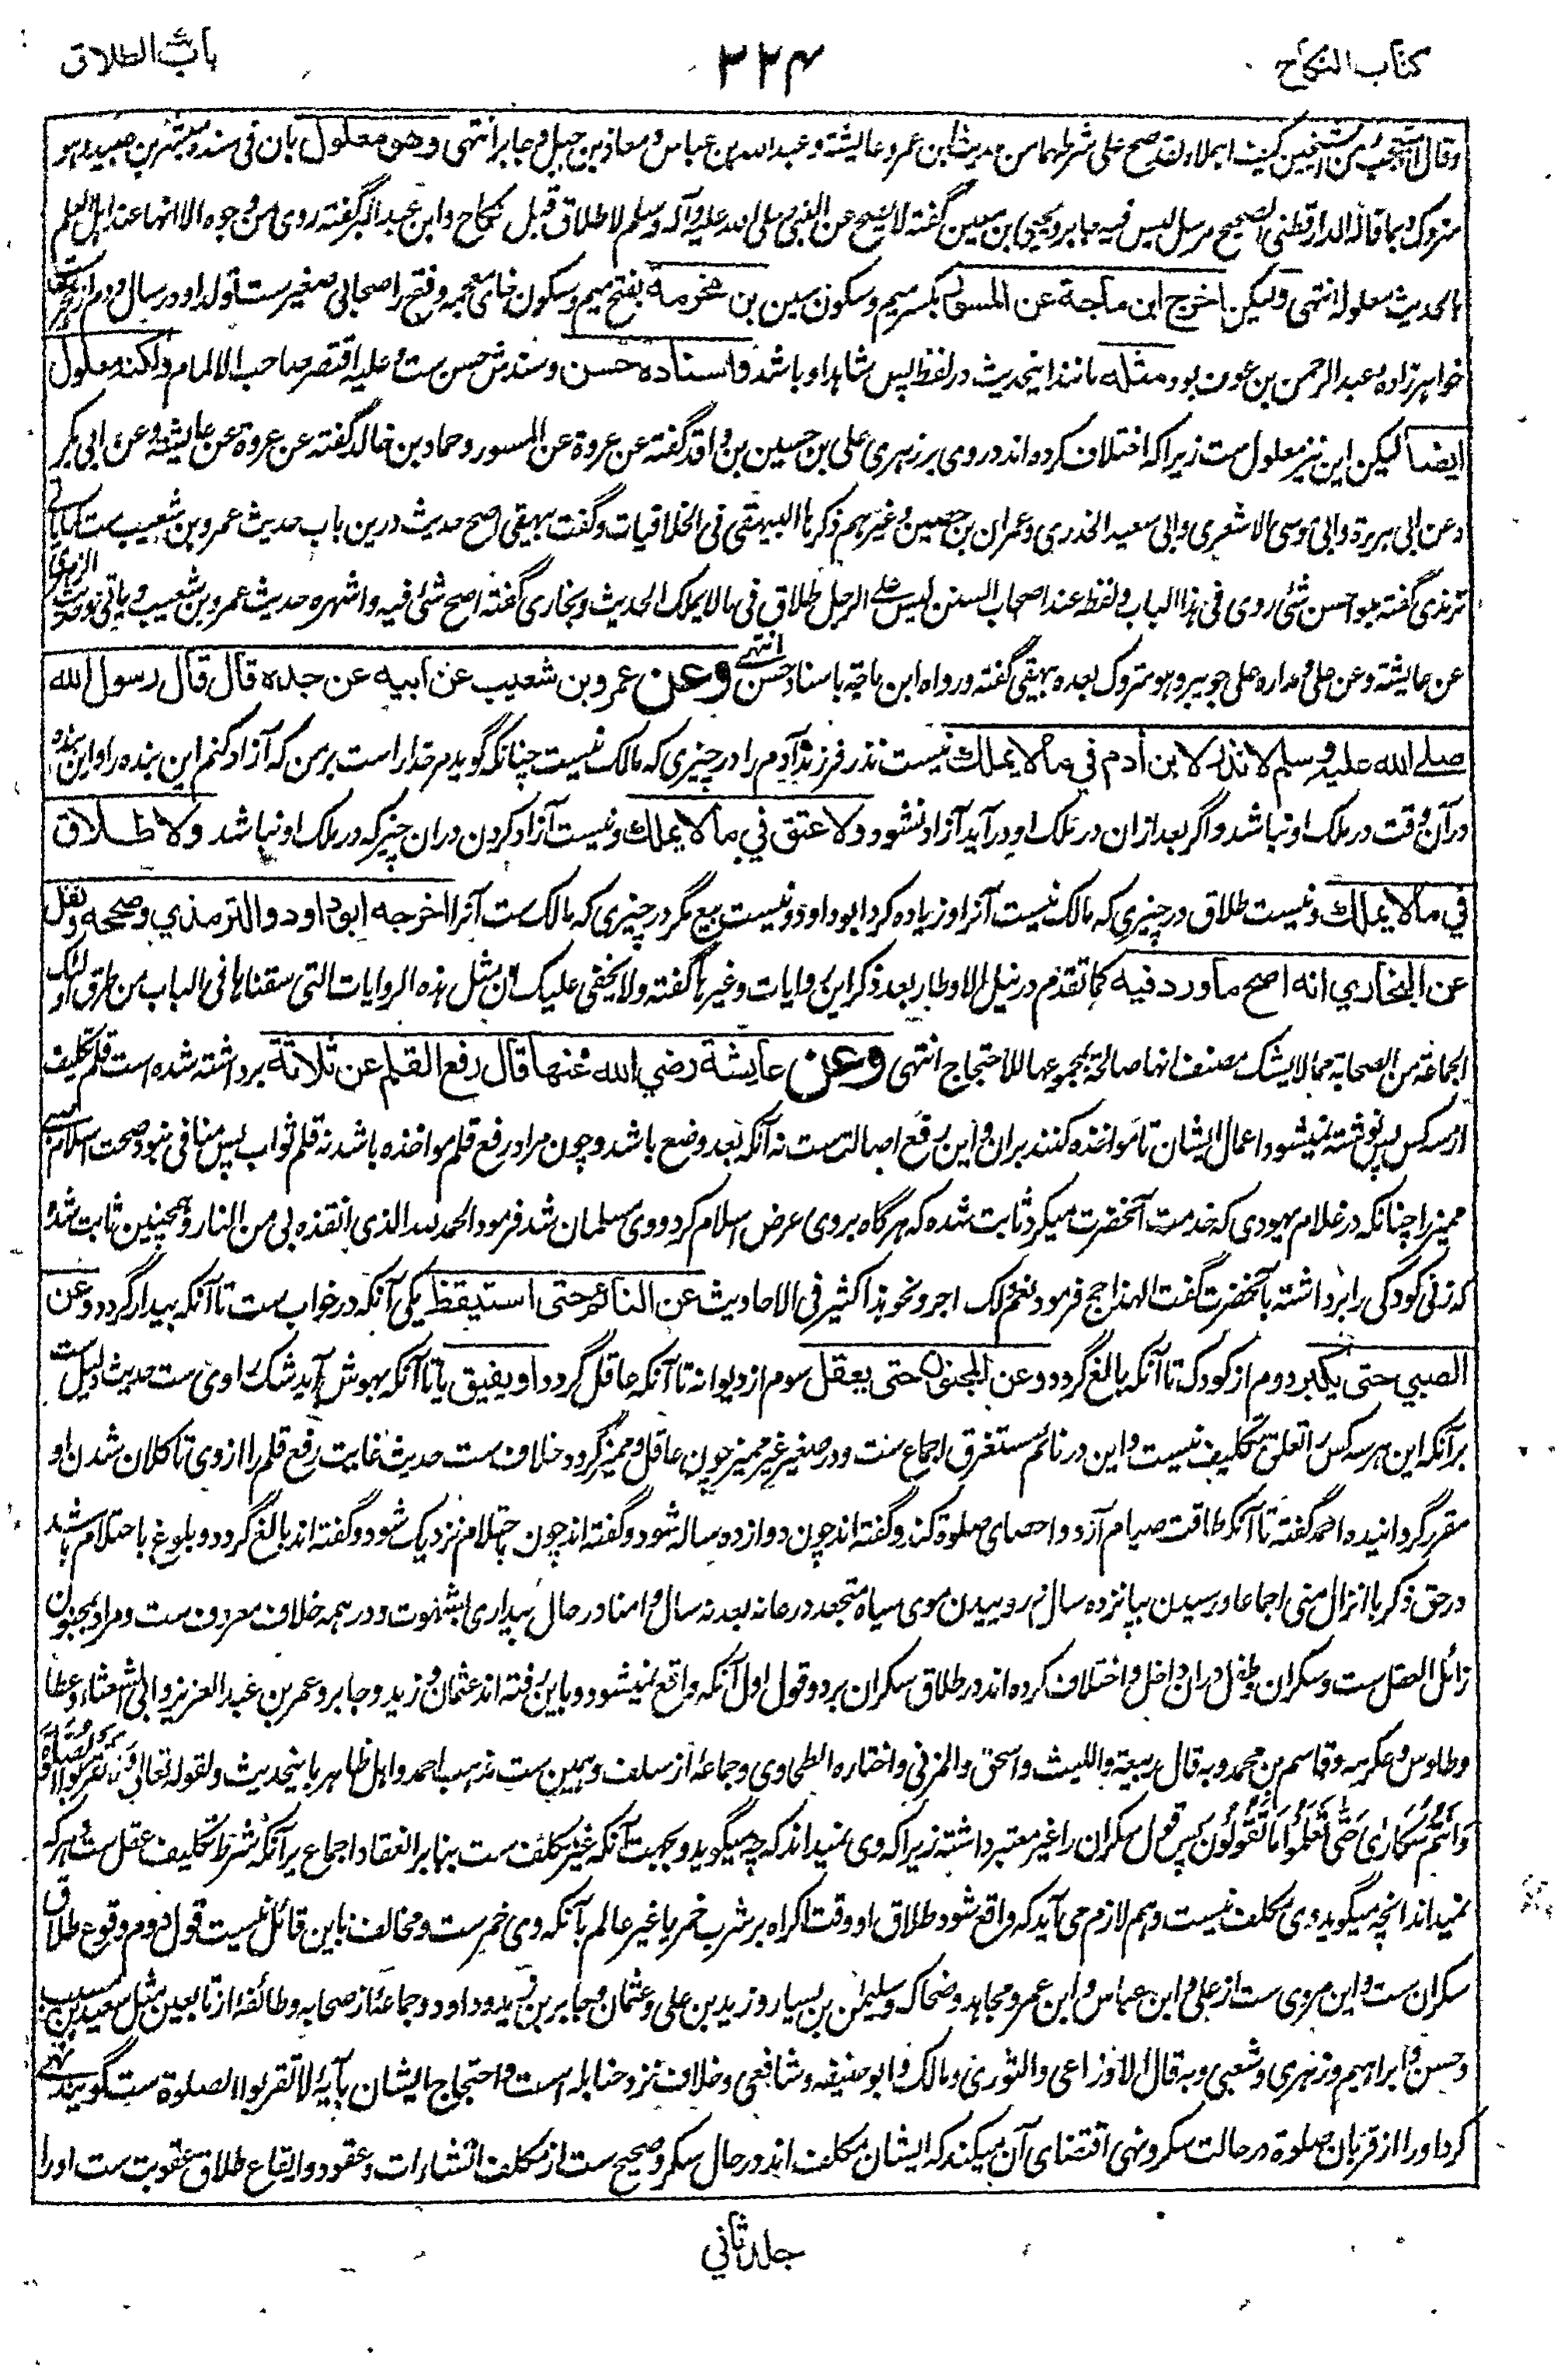 كتاب النكاح
۲۲۴
باب الطلاق
وقال من الشيخين كيف اهملاه لقد صح على شرطهما من حديث ابن عمر و عايشة و عبد الله بن عباس و معاذ بن جبل و جابر انتهى وهو معلول بان فى سنده
متروك و بما قاله الدارقطنى الصحيح مرسل ليس فيه جابر و يحيى بن معين گفته لا يصح عن النبى صلى الله عليه وآله وسلم لا طلاق قبل نكاح و ابن عبد البر گفته روى من وجوه الا انها عند اهل العلم
بالحديث معلولة انتهى وليكن اخرج ابن ماجة عن المسور بكسر ميم و سكون سين بن مخرمة بفتح ميم و سكون خاى معجمه و فتح را صحابى صغير ست تولد او در سال دوم از هجرت
خواهرزاده عبد الرحمن بن عوف بود مثله مانند اينحديث در لفظ پس شاهد او باشد واسناده حسن و سندش حسن ست و عليه اقتصر صاحب الالمام ولكنه معلول
ايضا ليكن اين نيز معلول ست زيرا كه اختلاف كرده اند در وى بر زهرى على بن حسين بن واقد گفته عن عروة عن المسور و حماد بن خالد گفته عن عروة عن عايشة و عن ابى بكر
و عن ابى هريرة و ابى موسى الاشعرى و ابى سعيد الخدرى و عمران بن حصين و غيرهم ذكرها البيهقى فى الخلافيات و گفت بيهقى اصح حديث درين باب حديث عمرو بن شعيب ست
ترمذى گفته هو احسن شئ روى فى هذا الباب و لفظه عند اصحاب السنن ليس على الرجل طلاق فى ما لا يملك الحديث و بخارى گفته اصح شئ فيه و اشهره حديث عمرو بن شعيب و ياتى و حديث الزهرى
عن عايشة و عن على و مداره على جويبر و هو متروك بعده بيهقى گفته و رواه ابن ماجة باسناد حسن انتهى وعن عمرو بن شعيب عن ابيه عن جده قال قال رسول الله
صلے الله عليه وسلم لا نذر لا بن أدم في ما لا يملك نيست نذر فرزند آدم را در چيزى كه مالك نيست چنانكه گويد مر خدا راست بر من كه آزاد كنم اين بنده را و اين بنده
در آن وقت در ملك او نباشد و اگر بعد ازان در ملك او در آيد آزاد نشود ولا عتق في ما لا يملك و نيست آزاد كردن دران چيز كه در ملك او نباشد ولا طلاق
في ما لا يملك و نيست طلاق در چيزى كه مالك نيست آنرا و زياده كرد ابو داود و نيست بيع مگر در چيزى كه مالك ست آنرا اخرجه ابو داود والترمذي وصححه ونقل
عن البخاري انه اصح ما ورد فيه كما تقدم در نيل الاوطار بعد ذكر اين روايات و غيرها گفته ولا يخفى عليك ان مثل هذه الروايات التى سقناها فى الباب من طرق اولئك
الجماعة من الصحابة مما لا يشك مصنف انها صالحة بمجموعها للاحتجاج انتهى وعن عايشة رضي الله عنها قال رفع القلم عن ثلاثة برداشته شده است قلم تكليف
از سه كس پس نوشته نميشود اعمال ايشان تا مواخذه كنند بران و اين رفع اصالت ست نه آنكه بعد وضع باشد و چون مراد رفع قلم مواخذه باشد نه قلم ثواب پس منافى نبود صحت اسلام صبى
مميز را چنانكه در غلام يهودى كه خدمت آنحضرت ميكرد ثابت شده كه هرگاه بر وى عرض اسلام كرد و وى مسلمان شد فرمود الحمد لله الذى انقذه بى من النار و همچنين ثابت شده
كه زنى كودكى را برداشته بآنحضرت گفت الهذا حج فرمود نعم و لك اجر و نحو هذا كثير فى الاحاديث عن النائم حتى استيقظ يكى آنكه در خواب ست تا آنكه بيدار گردد وعن
الصبي حتى يكبر دوم از كودك تا آنكه بالغ گردد وعن المجنون حتى يعقل سوم از ديوانه تا آنكه عاقل گردد او يفيق يا تا آنكه بهوش آيد شك راوى ست حديث دليل ست
بر آنكه اين هر سه كس را تعلق تكليف نيست و اين در نائم مستغرق اجماع ست و در صغير غير مميز چون عاقل و مميز گردد خلاف ست حديث غايت رفع قلم را از وى تا كلان شدن او
مقرر گردانيده احمد گفته تا آنكه طاقت صيام آرد و احصاى صلوة كند و گفته اند چون دوازده ساله شود و گفته اند چون باحتلام نزديك شود و گفته اند بالغ گردد و بلوغ باحتلام باشد
در حق ذكر با انزال منى اجماعا و رسيدن بپانزده سال و روييدن موى سياه متجعد در عانه بعد نه سال و امنا در حال بيدارى بشهوت و در همه خلاف معروف ست و مراد بمجنون
زائل العقل ست و سكران و طفل دران داخل و اختلاف كرده اند در طلاق سكران بر دو قول اول آنكه واقع نميشود و باين رفته اند عثمان و زيد و جابر و عمر بن عبد العزيز و ابى الشعثاء و عطا
و طاوس و عكرمه و قاسم بن محمد و به قال ربيعة والليث و اسحق والمزنى و اختاره الطحاوى و جماعة از سلف و همين ست مذهب احمد و اهل ظاهر باينحديث و لقوله تعالى لا تقربوا الصلوة
وَأَنْتُمْ سُكَارَىٰ حَتَّىٰ تَعْلَمُوا مَا تَقُولُونَ پس قول سكران را غير معتبر داشته زيرا كه وى نميداند كه چه ميگويد و بجهت آنكه غير مكلف ست بنا بر انعقاد اجماع بر آنكه شرط تكليف عقل ست و هر كه
نميداند انچه ميگويد وى مكلف نيست و هم لازم مى آيد كه واقع شود طلاق او وقت اكراه بر شرب خمر يا غير عالم بآنكه وى خمر ست و مخالف باين قائل نيست قول دوم وقوع طلاق
سكران ست و اين مروى ست از على و ابن عباس و ابن عمر و مجاهد و ضحاك و سليمن بن يسار و زيد بن على و عثمان و جابر بن زيد و داود و جماعة از صحابه و طائفه از تابعين مثل سعيد بن مسيب
و حسن و ابراهيم و زهرى و شعبى و به قال الاوزاعى والثورى و مالك و ابو حنيفه و شافعى و خلاف نزد حنابله است و احتجاج ايشان بآيه لا تقربوا الصلوة ست گويند نهى
كرد او را از قربان صلوة در حالت سكر و نهى اقتضاى آن ميكند كه ايشان مكلف اند در حال سكر و صحيح ست از مكلف انشاءات و عقود و ايقاع طلاق عقوبت ست او را
جلد ثاني